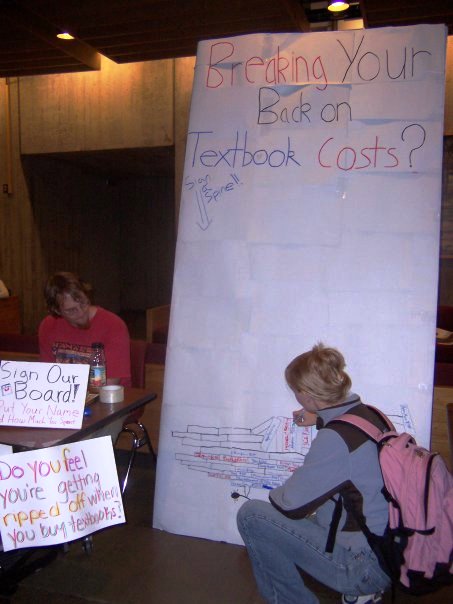 Breaking Your
Back on
Textbook Costs?
Sign
a
Spine!!
Sign Our
Board!
Put Your Name
d How Much You Spent
Do you feel
you're getting
ripped off when
you buy textbooks?